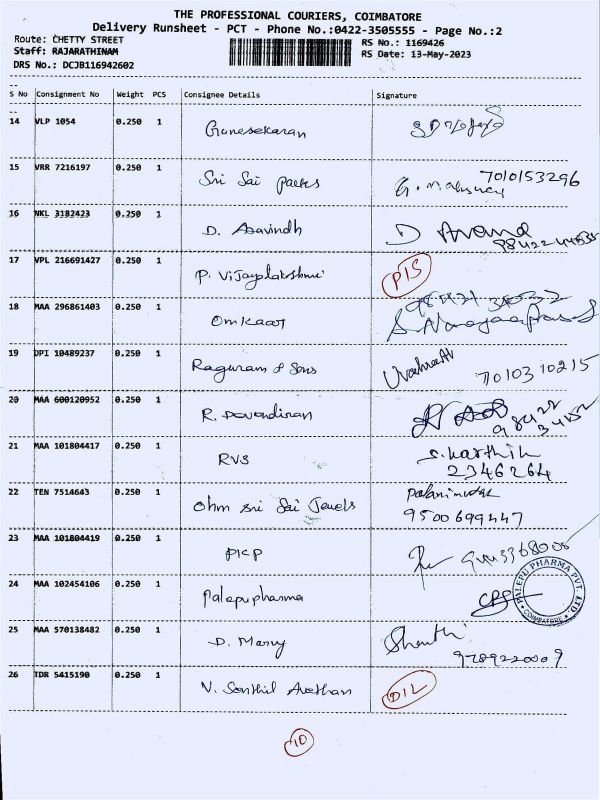 THE PROFESSIONAL COURIERS, COIMBATORE
Delivery Runsheet - PCT - Phone No.:0422-3505555 - Page No.:2
Route: CHETTY STREET RS No.: 1169426
Staff: RAJARATHINAM RS Date: 13-May-2023
DRS No.: DCJB116942602
S No Consignment No Weight PCS Consignee Details Signature
14 VLP 1054 0.250 1 Gunesekaran
15 VRR 7216197 0.250 1 Sri Sai Packs 7010153296
16 NKL 3182423 0.250 1 D. Aravindh D Anand
17 VPL 216691427 0.250 1 P. Vijayalakshmi PIS
18 MAA 296861403 0.250 1 Omkaar
19 DPI 10489237 0.250 1 Raguram & Sons 7010310215
20 MAA 600120952 0.250 1 R. Devendiran
21 MAA 101804417 0.250 1 RVS S. Karthik
2346264
22 TEN 7514643 0.250 1 Ohm Sri Sai Jewels
9500699447
23 MAA 101804419 0.250 1 PICP
24 MAA 102454106 0.250 1 Palepupharma PALEPU PHARMA PVT. LTD. COIMBATORE
25 MAA 570138482 0.250 1 D. Mary Shanthi
9789220009
26 TDR 5415190 0.250 1 V. Senthil DIL
10